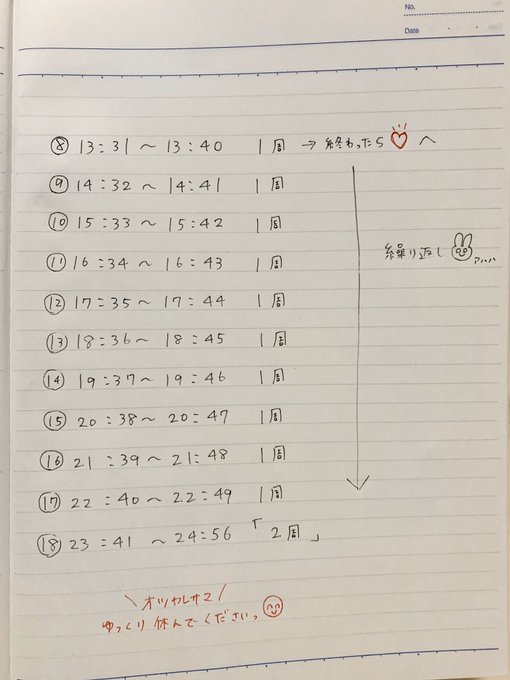 No.
Date
⑧ 13:31 ~ 13:40 1周 → 終わったら♡へ
⑨ 14:32 ~ 14:41 1周
⑩ 15:33 ~ 15:42 1周
繰り返し
アハハ
⑪ 16:34 ~ 16:43 1周
⑫ 17:35 ~ 17:44 1周
⑬ 18:36 ~ 18:45 1周
⑭ 19:37 ~ 19:46 1周
⑮ 20:38 ~ 20:47 1周
⑯ 21:39 ~ 21:48 1周
⑰ 22:40 ~ 22:49 1周
⑱ 23:41 ~ 24:56 「2周」
\オツカレサマ/
ゆっくり休んでくださいっ